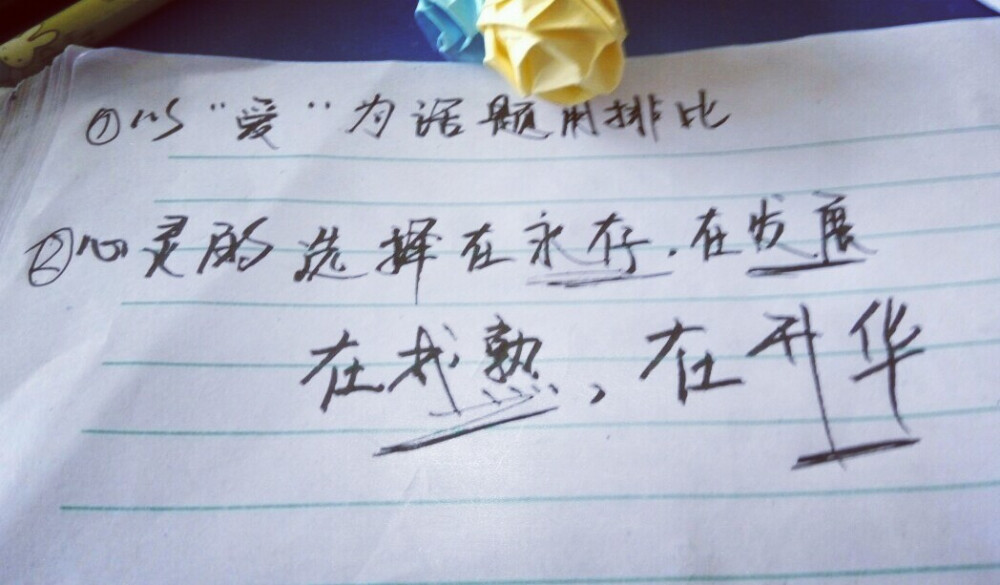 ①以“爱”为话题用排比
②心灵的选择在永存.在发展
在成熟,在升华